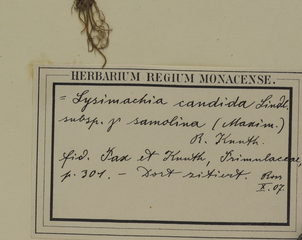 HERBARIUM REGIUM MONACENSE.
= Lysimachia candida Lindl.
subsp. γ samolina (Maxim.)
R. Knuth.
fid. Pax et Knuth, Primulaceae,
p. 301. – Dort zitiert. Ross
X. 07.